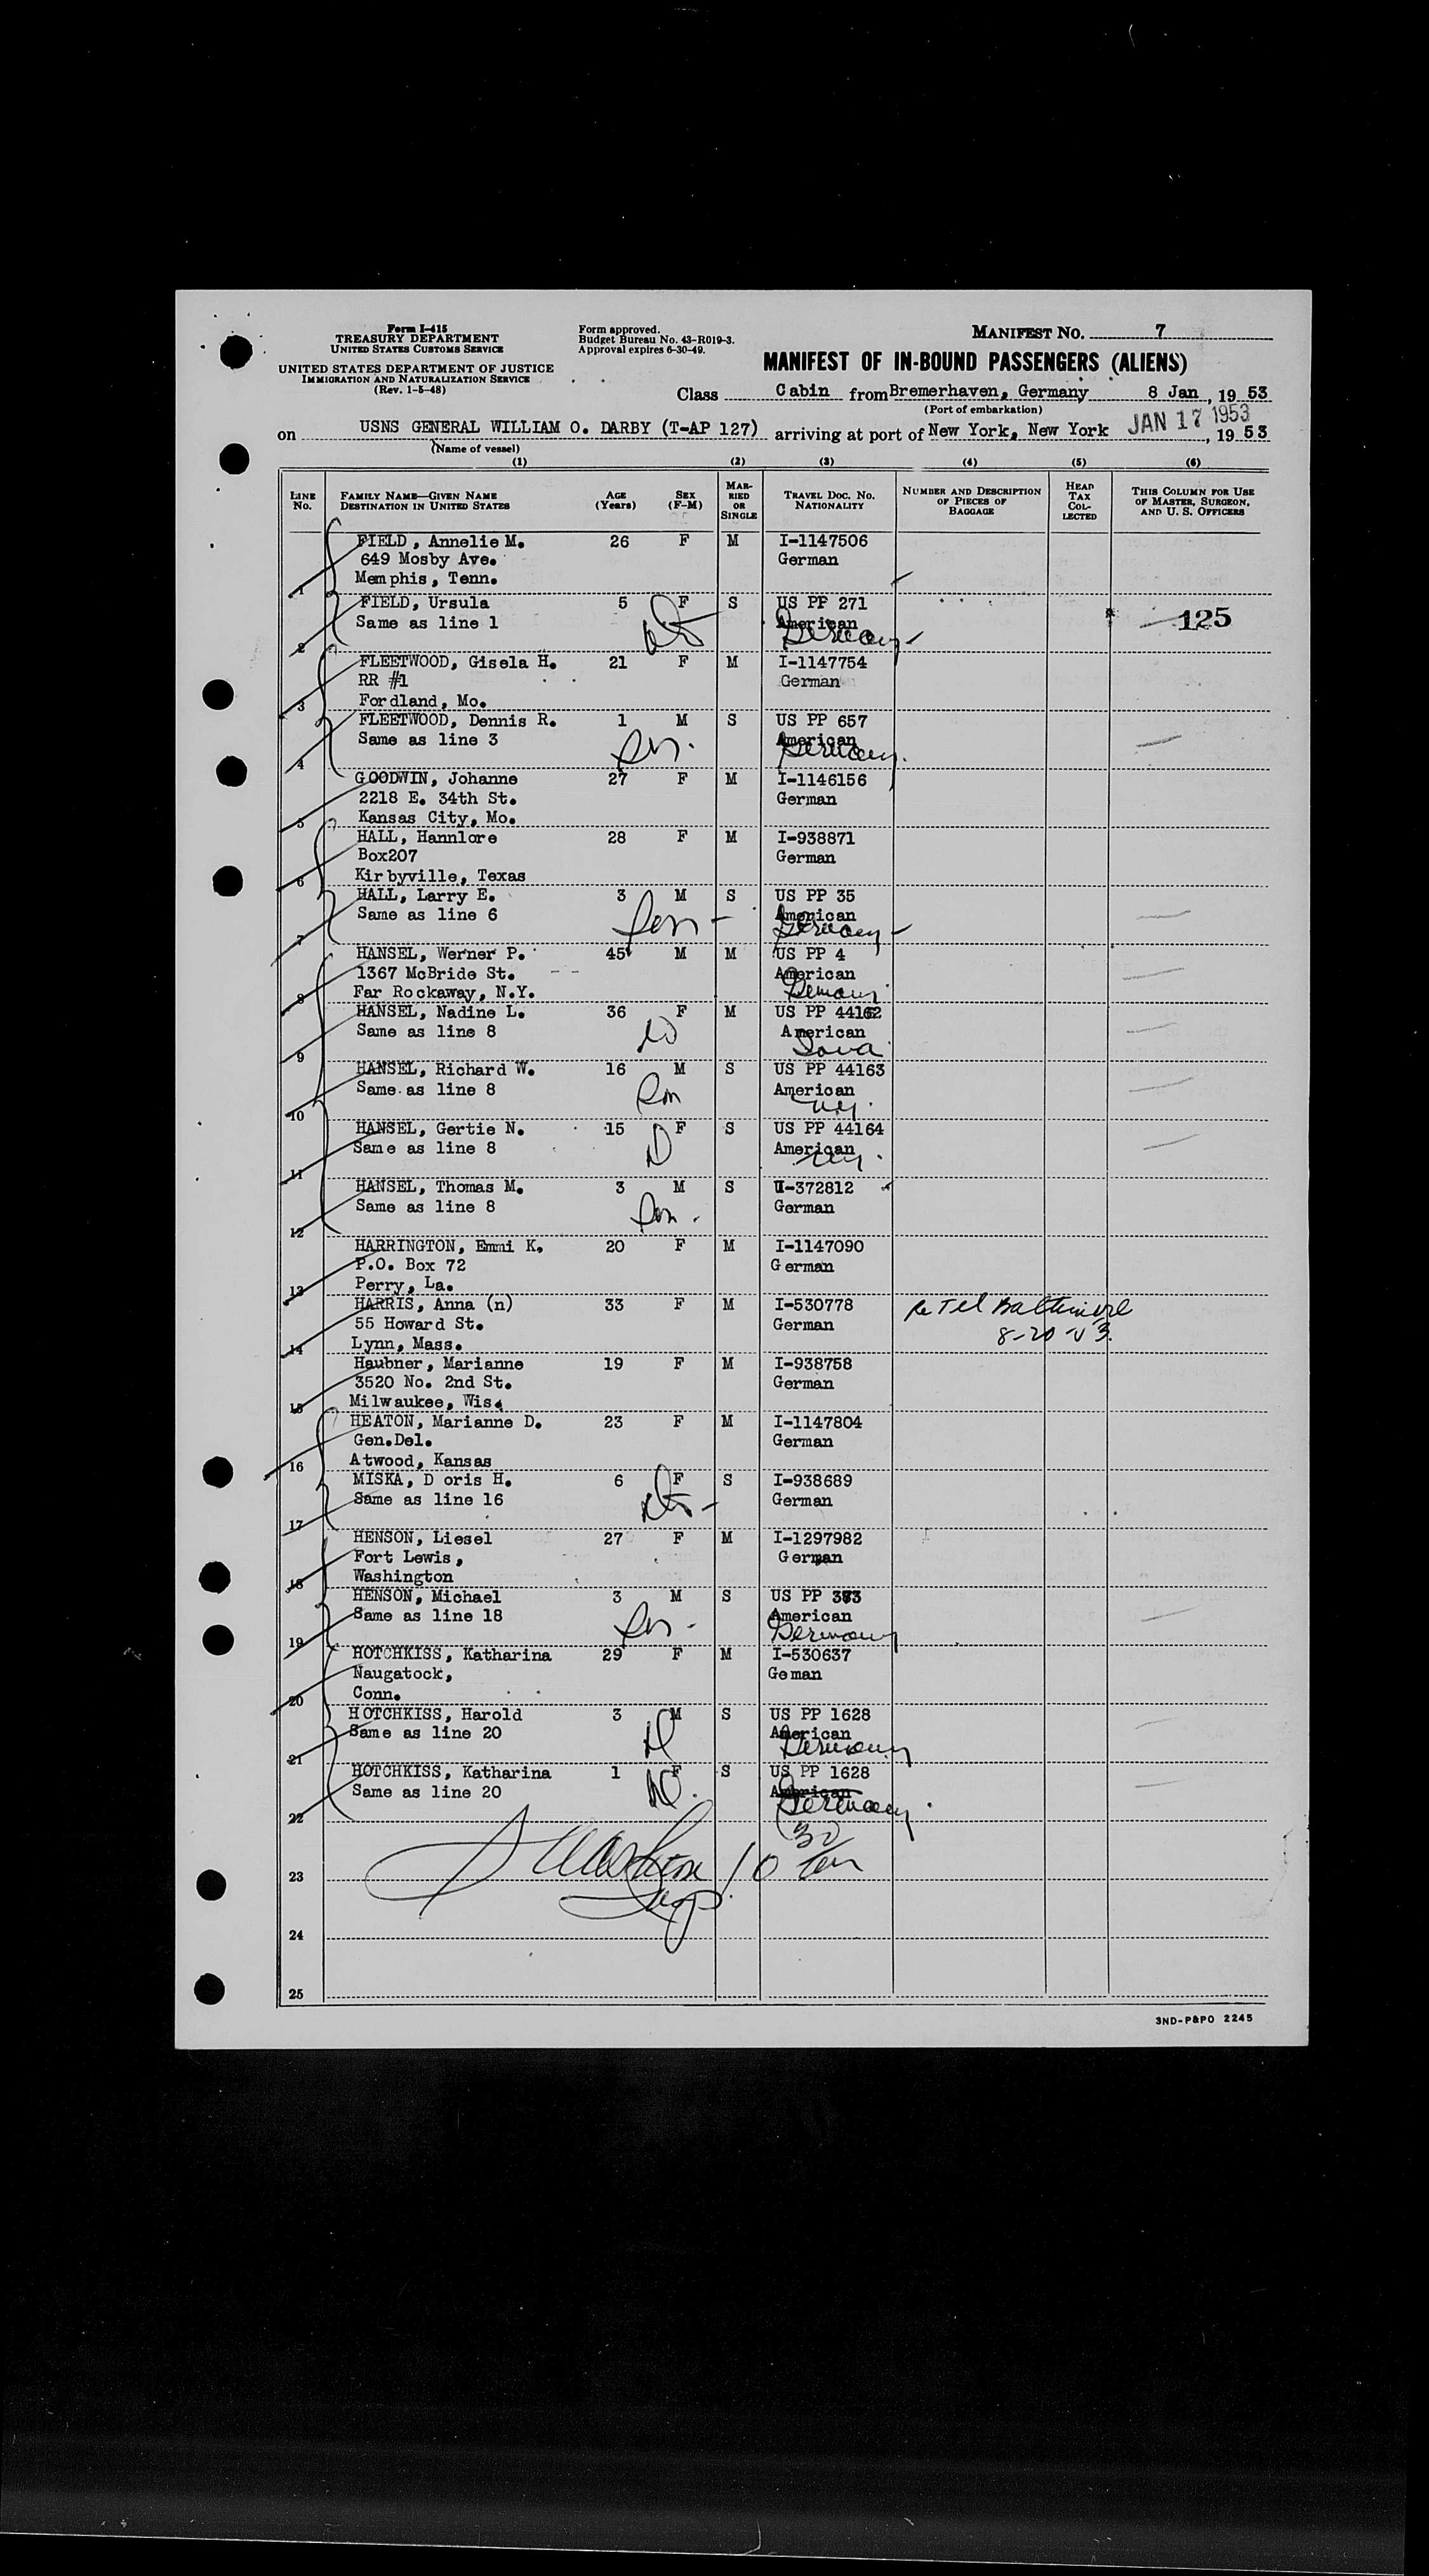 Form I-415
TREASURY DEPARTMENT
UNITED STATES CUSTOMS SERVICE
UNITED STATES DEPARTMENT OF JUSTICE
IMMIGRATION AND NATURALIZATION SERVICE
(Rev. 1-5-48)
Form approved.
Budget Bureau No. 43-R019-3.
Approval expires 6-30-49.
MANIFEST NO. 7
MANIFEST OF IN-BOUND PASSENGERS (ALIENS)
Class Cabin from Bremerhaven, Germany 8 Jan, 19 53
(Port of embarkation)
on USNS GENERAL WILLIAM O. DARBY (T-AP 127) arriving at port of New York, New York JAN 17 1953, 19 53
(Name of vessel)
(1) (2) (3) (4) (5) (6)
LINE No. FAMILY NAME—GIVEN NAME DESTINATION IN UNITED STATES AGE (Years) SEX (F-M) MARRIED OR SINGLE TRAVEL DOC. NO. NATIONALITY NUMBER AND DESCRIPTION OF PIECES OF BAGGAGE HEAD TAX COLLECTED THIS COLUMN FOR USE OF MASTER, SURGEON, AND U. S. OFFICERS
FIELD, Annelie M. 26 F M I-1147506
649 Mosby Ave. German
1 Memphis, Tenn.
FIELD, Ursula 5 F S US PP 271
Same as line 1 American 125
2 Germany
FLEETWOOD, Gisela H. 21 F M I-1147754
RR #1 German
3 Fordland, Mo.
FLEETWOOD, Dennis R. 1 M S US PP 657
Same as line 3 American
4 Son. Germany.
GOODWIN, Johanne 27 F M I-1146156
2218 E. 34th St. German
5 Kansas City, Mo.
HALL, Hannlore 28 F M I-938871
Box207 German
6 Kirbyville, Texas
HALL, Larry E. 3 M S US PP 35
Same as line 6 American
7 Son Germany
HANSEL, Werner P. 45 M M US PP 4
1367 McBride St. American
8 Far Rockaway, N.Y. Germany
HANSEL, Nadine L. 36 F M US PP 44162
Same as line 8 American
9 W Iowa
HANSEL, Richard W. 16 M S US PP 44163
Same as line 8 American
10 Son N.Y.
HANSEL, Gertie N. 15 F S US PP 44164
Same as line 8 American
11 D N.Y.
HANSEL, Thomas M. 3 M S I-372812
Same as line 8 German
12 Son.
HARRINGTON, Emmi K. 20 F M I-1147090
P.O. Box 72 German
13 Perry, La.
HARRIS, Anna (n) 33 F M I-530778 Re Tel Baltimore
55 Howard St. German 8-20-53.
14 Lynn, Mass.
Haubner, Marianne 19 F M I-938758
3520 No. 2nd St. German
15 Milwaukee, Wis.
HEATON, Marianne D. 23 F M I-1147804
Gen.Del. German
16 Atwood, Kansas
MISKA, D oris H. 6 F S I-938689
Same as line 16 German
17
HENSON, Liesel 27 F M I-1297982
Fort Lewis, German
18 Washington
HENSON, Michael 3 M S US PP 373
Same as line 18 American
19 Son. Germany
HOTCHKISS, Katharina 29 F M I-530637
Naugatock, Geman
20 Conn.
HOTCHKISS, Harold 3 M S US PP 1628
Same as line 20 American
21 Germany
HOTCHKISS, Katharina 1 F S US PP 1628
Same as line 20 American
22 Germany.
23 10 30
24
25
3ND-P&PO 2245